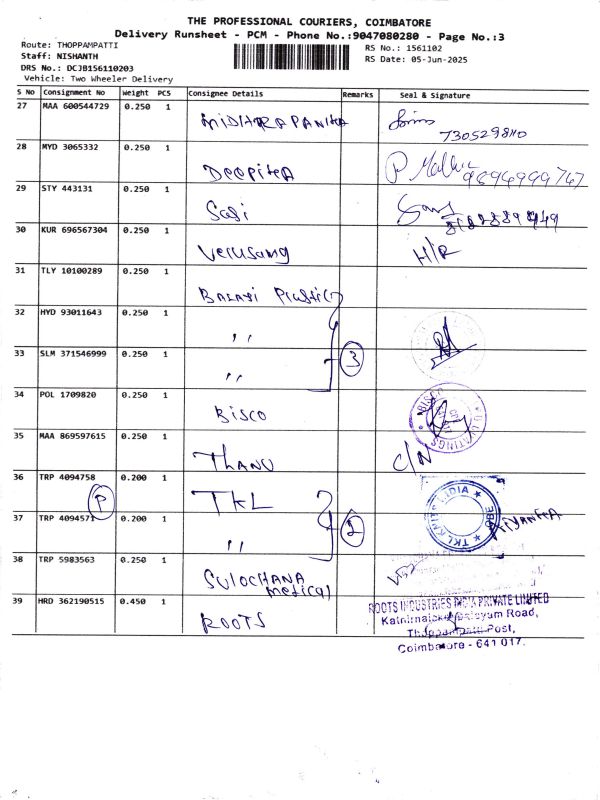 THE PROFESSIONAL COURIERS, COIMBATORE
Delivery Runsheet - PCM - Phone No.:9047080280 - Page No.:3
Route: THOPPAMPATTI
Staff: NISHANTH
DRS No.: DCJB156110203
Vehicle: Two Wheeler Delivery
RS No.: 1561102
RS Date: 05-Jun-2025
S No Consignment No Weight PCS Consignee Details Remarks Seal & Signature
27 MAA 600544729 0.250 1
28 MYD 3065332 0.250 1 Deepika
9894999767
29 STY 443131 0.250 1 Sasi
30 KUR 696567304 0.250 1 Verusamg H/R
31 TLY 10100289 0.250 1 Balaji Plastic
32 HYD 93011643 0.250 1 ,,
33 SLM 371546999 0.250 1 ,, 3
34 POL 1709820 0.250 1 Bisco
BISCO
35 MAA 869597615 0.250 1 THANU C/N
36 TRP 4094758 0.200 1 TKL
P
TKL KNITS INDIA
37 TRP 4094571 0.200 1 ,, 2
38 TRP 5983563 0.250 1 SULOCHANA
medical
39 HRD 362190515 0.450 1 ROOTS
ROOTS INDUSTRIES INDIA PRIVATE LIMITED
Road,
Thoppampatti Post,
Coimbatore - 641 017.